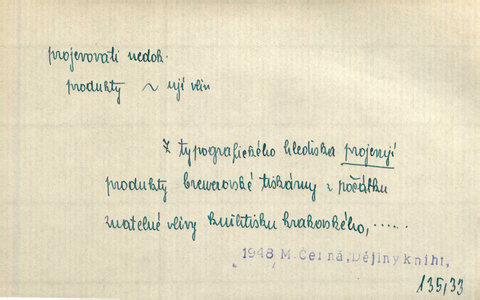 projevovati nedok.
produkty ~ ují vliv
Z typografického hlediska projevují
produkty brewerovské tiskárny z počátku
znatelné vlivy knihtisku krakovského, .....
1948 M. Černá, Dějiny kniht.
135,33